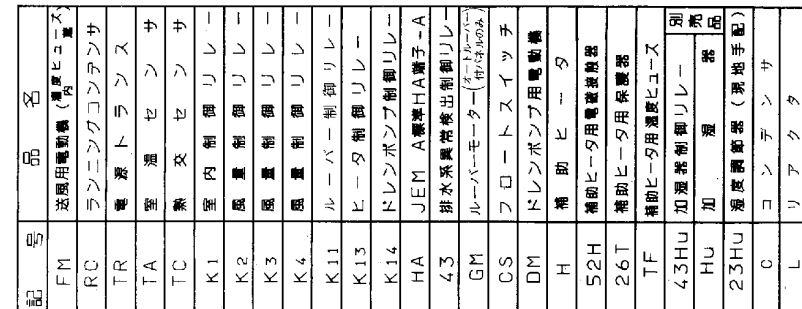 記号 品名
FM 送風用電動機(温度ヒューズ内蔵)
RC ランニングコンデンサ
TR 電源トランス
TA 室温センサ
TC 熱交センサ
K1 室内制御リレー
K2 風量制御リレー
K3 風量制御リレー
K4 風量制御リレー
K11 ルーバー制御リレー
K13 ヒータ制御リレー
K14 ドレンポンプ制御リレー
HA JEM A標準HA端子-A
43 排水系異常検出制御リレー
GM ルーバーモーター(オートルーバー付パネルのみ)
CS フロートスイッチ
DM ドレンポンプ用電動機
H 補助ヒータ
52H 補助ヒータ用電磁接触器
26T 補助ヒータ用保護器
TF 補助ヒータ用温度ヒューズ
別売品
43Hu 加湿器制御リレー
Hu 加湿器
23Hu 湿度調節器(現地手配)
C コンデンサ
L リアクタ